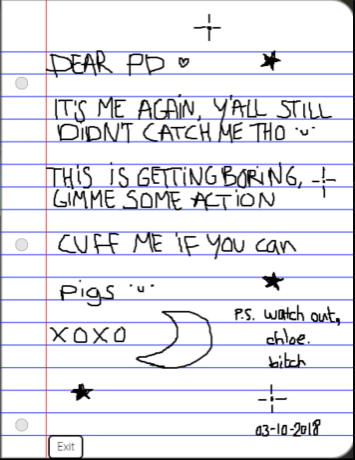 DEAR PD ♡
IT'S ME AGAIN, Y'ALL STILL
DIDN'T CATCH ME THO ˙ᵕ˙
THIS IS GETTING BORING,
GIMME SOME ACTION
CUFF ME IF YOU can
pigs ˙ᵕ˙
XOXO
P.S. watch out,
chloe.
bitch
03-10-2018
Exit